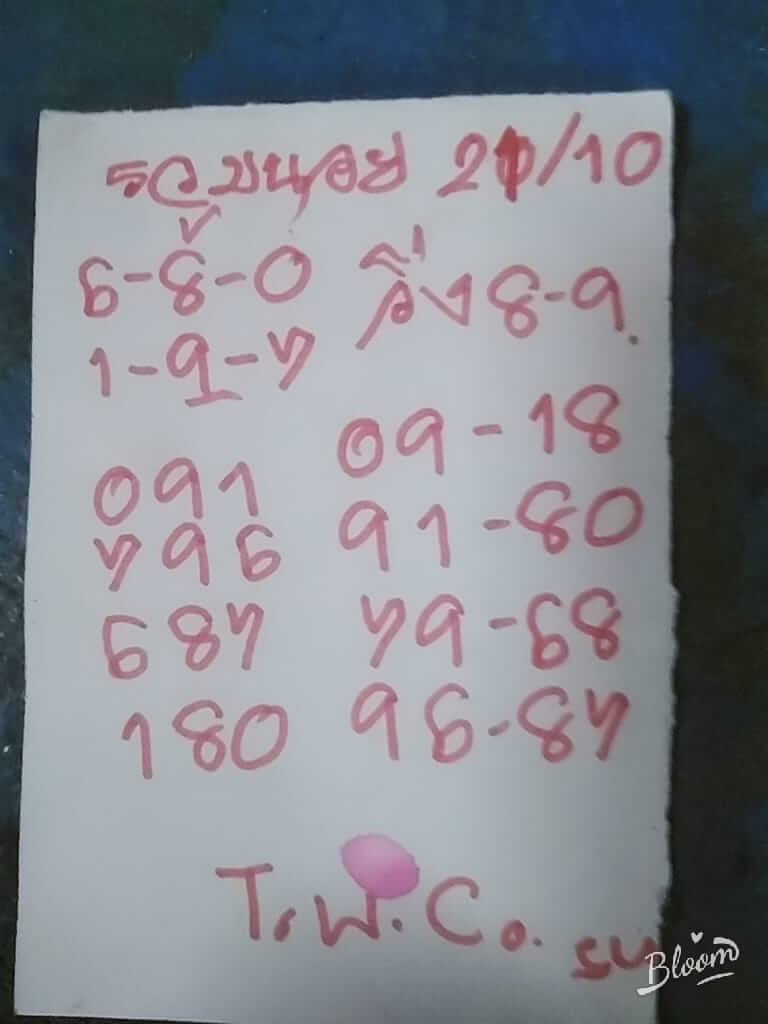 21/10
6-8-0 วิ่ง 8-9.
1-9-7
09-18
091
91-80
796
79-68
687
96-87
180
T.W.Co.
Bloom